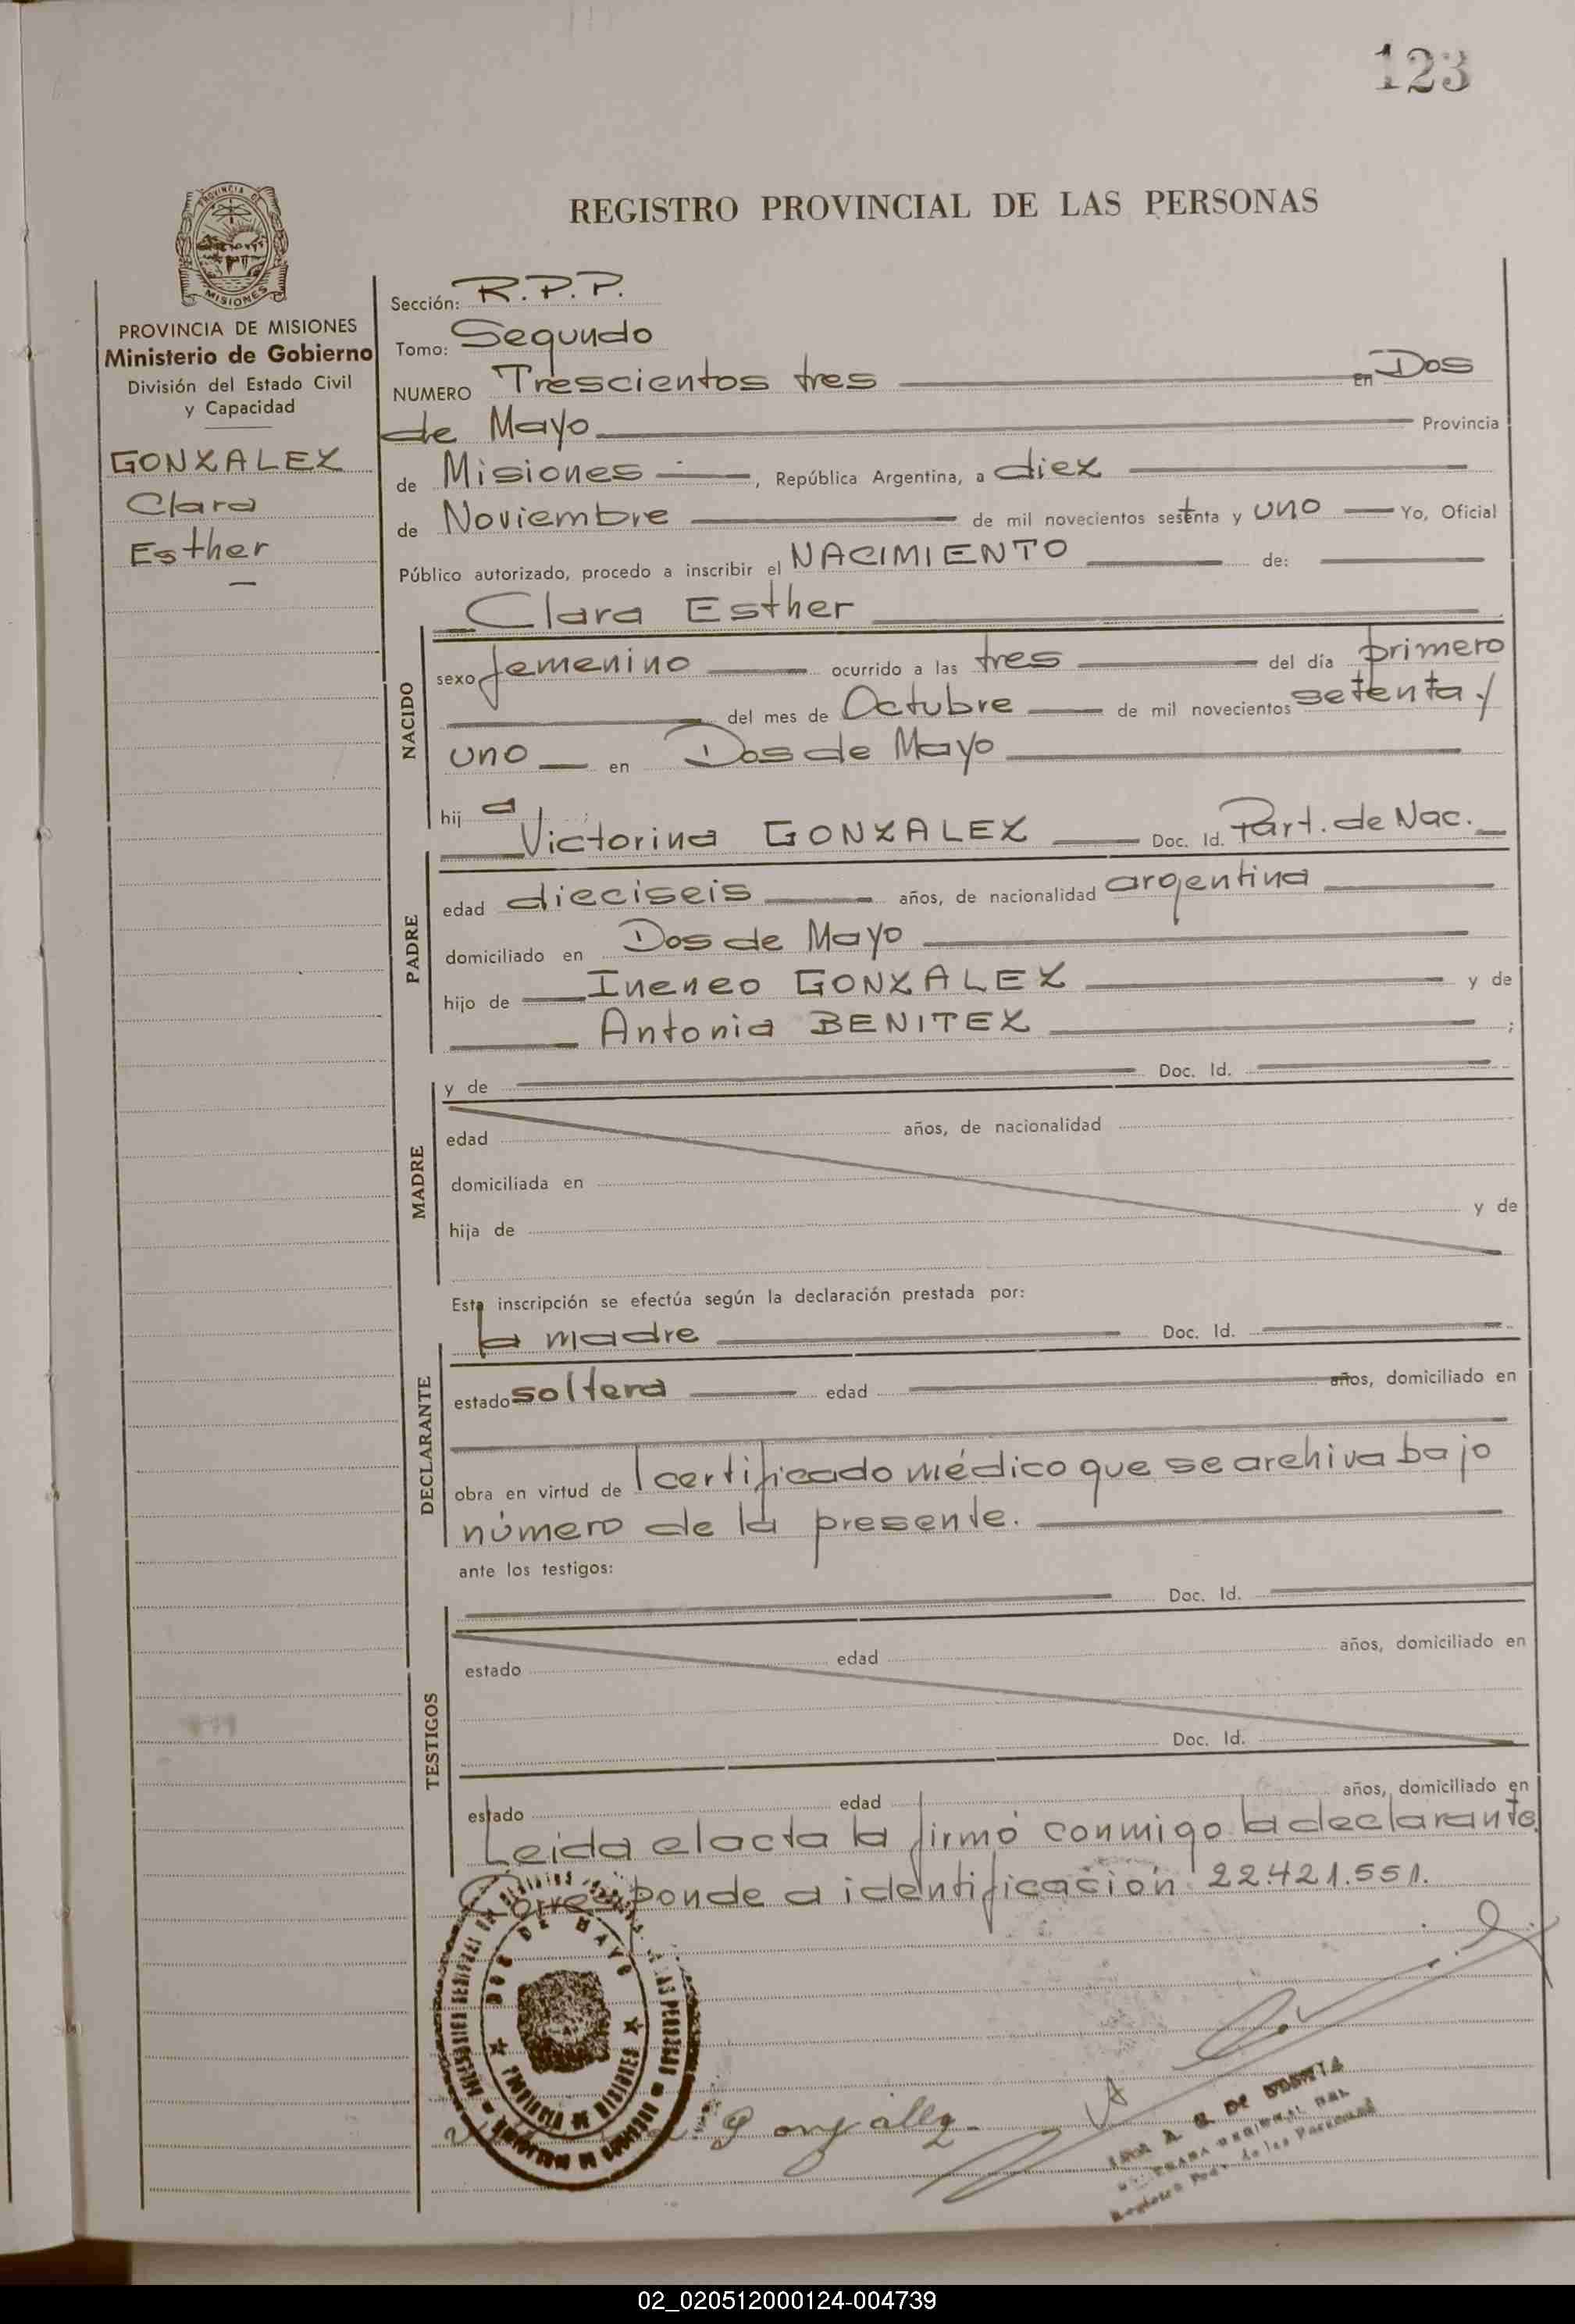 123
REGISTRO PROVINCIAL DE LAS PERSONAS
PROVINCIA DE
MISIONES
PROVINCIA DE MISIONES
Ministerio de Gobierno
División del Estado Civil
y Capacidad
GONZALEZ
Clara
Esther
Sección: R.P.P.
Tomo: Segundo
NUMERO Trescientos tres en Dos
de Mayo Provincia
de Misiones, República Argentina, a diez
de Noviembre de mil novecientos sesenta y uno Yo, Oficial
Público autorizado, procedo a inscribir el NACIMIENTO de:
Clara Esther
NACIDO
sexo femenino ocurrido a las tres del día primero
del mes de Octubre de mil novecientos setenta y
uno en Dos de Mayo
hij a
Victorina GONZALEZ Doc. Id. Part. de Nac.
PADRE
edad dieciseis años, de nacionalidad argentina
domiciliado en Dos de Mayo
hijo de Ineneo GONZALEZ y de
Antonia BENITEZ ;
MADRE
y de Doc. Id.
edad años, de nacionalidad
domiciliada en
hija de y de
Esta inscripción se efectúa según la declaración prestada por:
la madre Doc. Id.
DECLARANTE
estado soltera edad años, domiciliado en
obra en virtud de certificado médico que se archiva bajo
número de la presente.
ante los testigos:
Doc. Id.
TESTIGOS
estado edad años, domiciliado en
Doc. Id.
estado edad años, domiciliado en
Leida el acta la firmó conmigo la declarante.
Corresponde a identificación 22.421.551.
DOS DE MAYO
MISIONES
LAS PERSONAS
Gonzállez
de las Personas
02_020512000124-004739